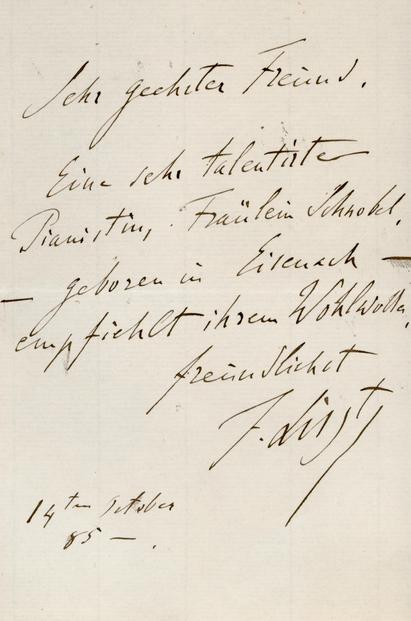 Sehr geehrter Freund.
Eine sehr talentirte
Pianistin, Fräulein
– geboren in Eisenach –
empfiehlt ihrem Wohlwollen,
freundlichst
F. Liszt
14ten October
85 – .